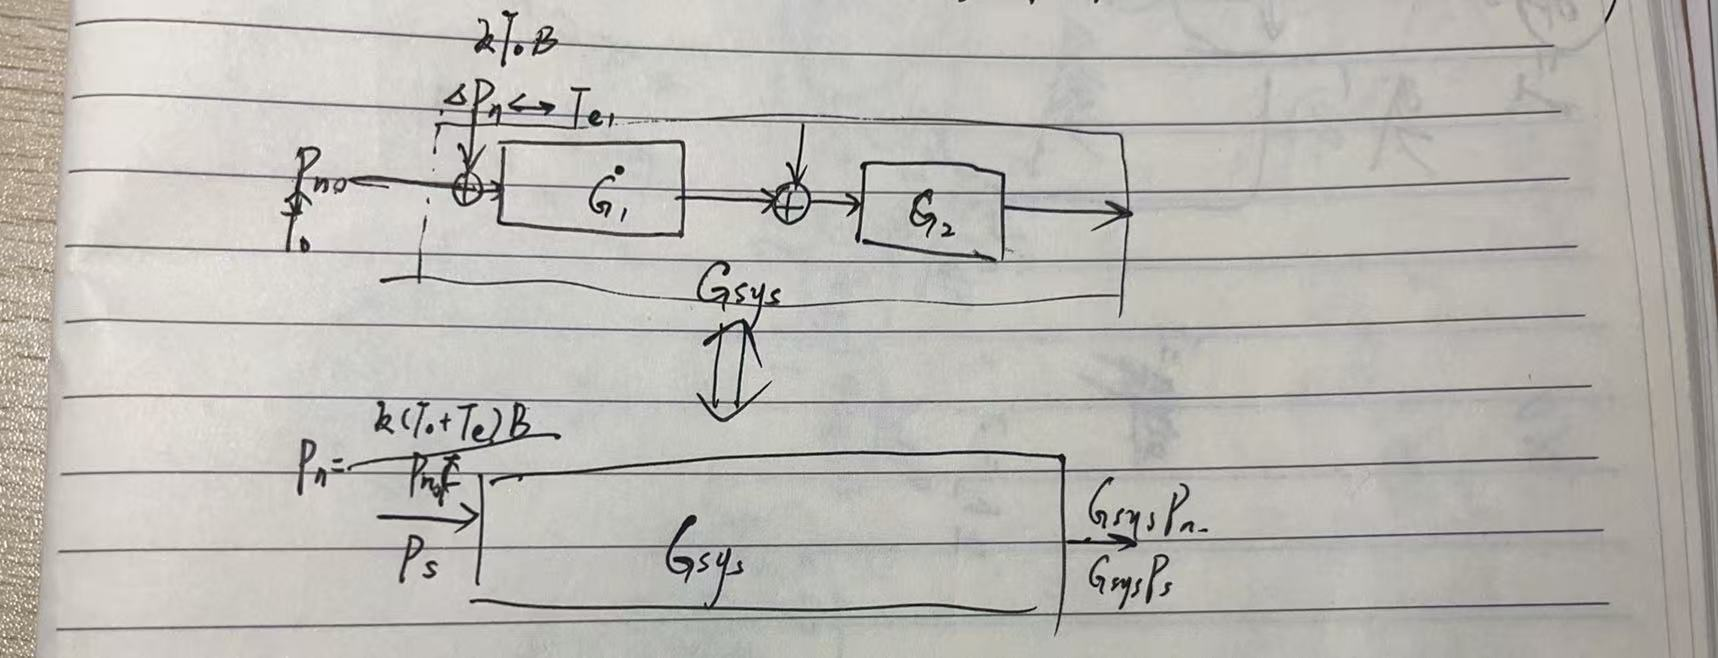 kT₀B
ΔPₙ ↔ Te₁
Pₙ₀
T₀
G₁
G₂
Gsys
k(T₀+Te)B
Pₙ=
Ps
Gsys
GsysPₙ
GsysPs